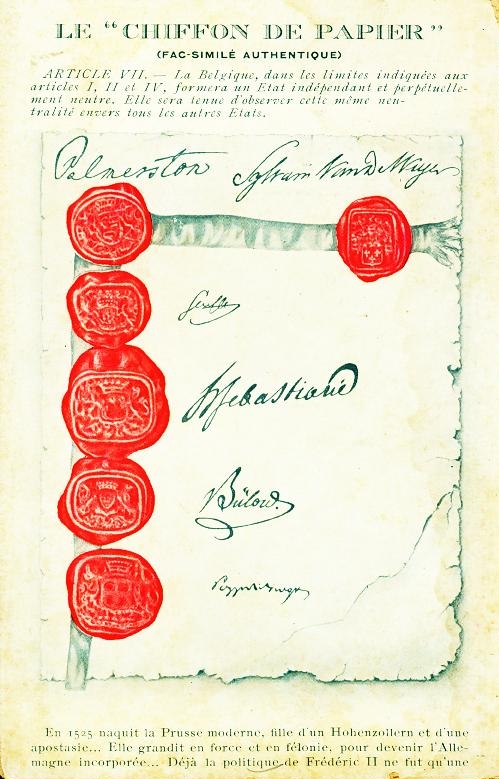 LE "CHIFFON DE PAPIER"
(FAC-SIMILÉ AUTHENTIQUE)
ARTICLE VII. — La Belgique, dans les limites indiquées aux
articles I, II et IV, formera un Etat indépendant et perpétuelle-
ment neutre. Elle sera tenue d'observer cette même neu-
tralité envers tous les autres Etats.
Palmerston Sylvain Van de Weyer
HSebastiani
Bülow.
En 1525 naquit la Prusse moderne, fille d'un Hohenzollern et d'une
apostasie... Elle grandit en force et en félonie, pour devenir l'Alle-
magne incorporée... Déjà la politique de Frédéric II ne fut qu'une